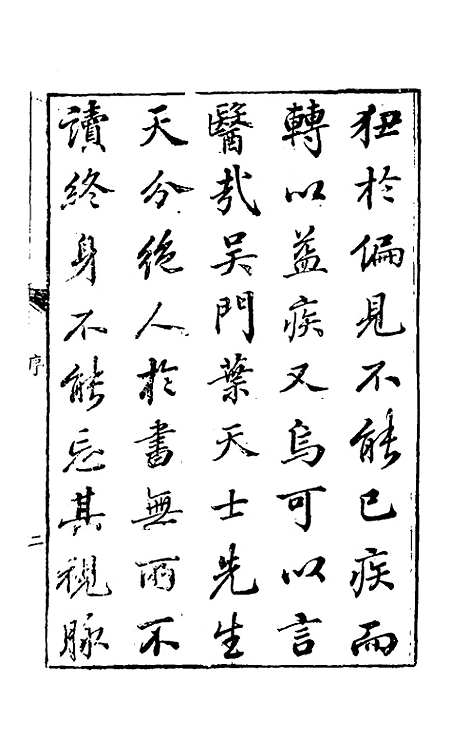 狃於偏見不能已疾而
轉以益疾又烏可以言
醫哉吴門葉天士先生
天分絶人於書無所不
讀終身不能忘其視脉
序
二